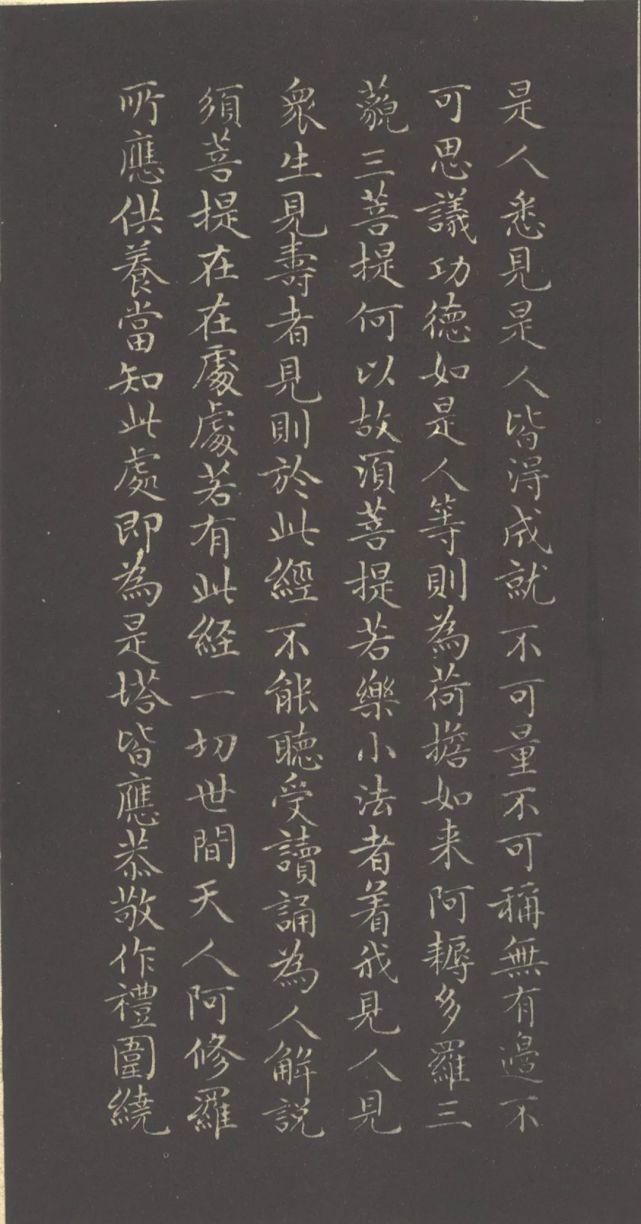 是人悉見是人皆得成就不可量不可稱無有邊不
可思議功德如是人等則為荷擔如来阿耨多羅三
藐三菩提何以故須菩提若樂小法者着我見人見
衆生見壽者見則於此經不能聽受讀誦為人解說
須菩提在在處處若有此經一切世間天人阿修羅
所應供養當知此處即為是塔皆應恭敬作禮圍繞